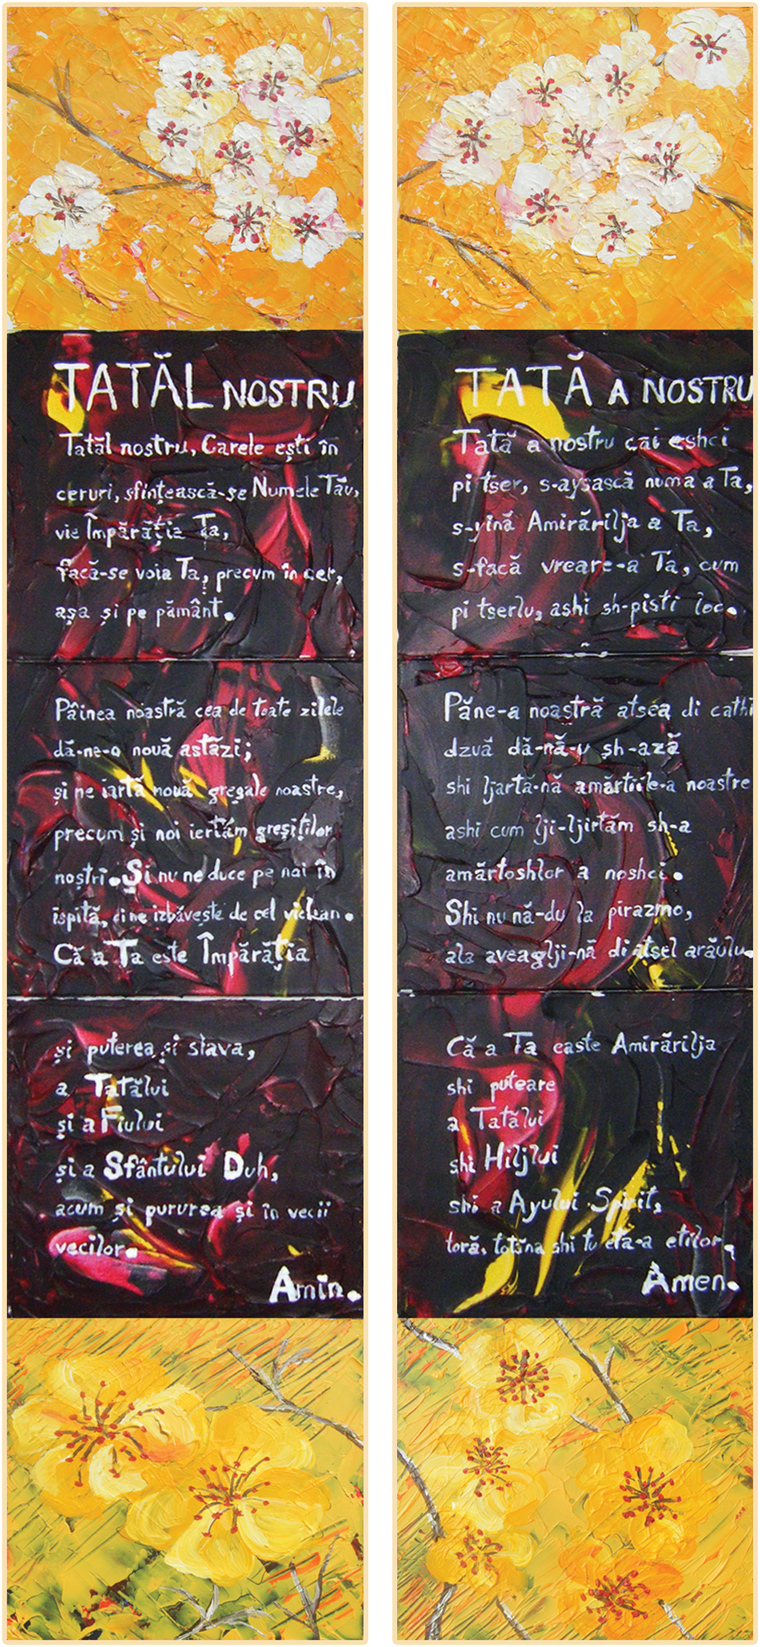 TATĂL NOSTRU
Tatăl nostru, Carele ești în
ceruri, sfințească-se Numele Tău,
vie Împărăția Ta,
facă-se voia Ta, precum în cer,
așa și pe pământ.
Pâinea noastră cea de toate zilele
dă-ne-o nouă astăzi;
și ne iartă nouă greșale noastre,
precum și noi iertăm greșiților
noștri. Și nu ne duce pe noi în
ispită, ci ne izbăvește de cel viclean.
Că a Ta este Împărăția
și puterea și slava,
a Tatălui
și a Fiului
și a Sfântului Duh,
acum și pururea și în vecii
vecilor.
Amin.
TATĂ A NOSTRU
Tată a nostru cai eshci
pi tser, s-aysască numa a Ta,
s-yină Amirărilja a Ta,
s-facă vreare-a Ta, cum
pi tserlu, ashi sh-pisti loc.
Păne-a noastră atsea di cathi
dzuă dă-nă-u sh-ază
shi ljartă-nă amărtiile-a noastre
ashi cum lji-ljirtăm sh-a
amărtoshlor a noshci.
Shi nu nă-du la pirazmo,
ala aveaglji-nă di atsel arăulu.
Că a Ta easte Amirărilja
shi puteare
a Tatălui
shi Hiljlui
shi a Ayului Spirit,
toră, totsna shi tu eta-a etilor.
Amen.